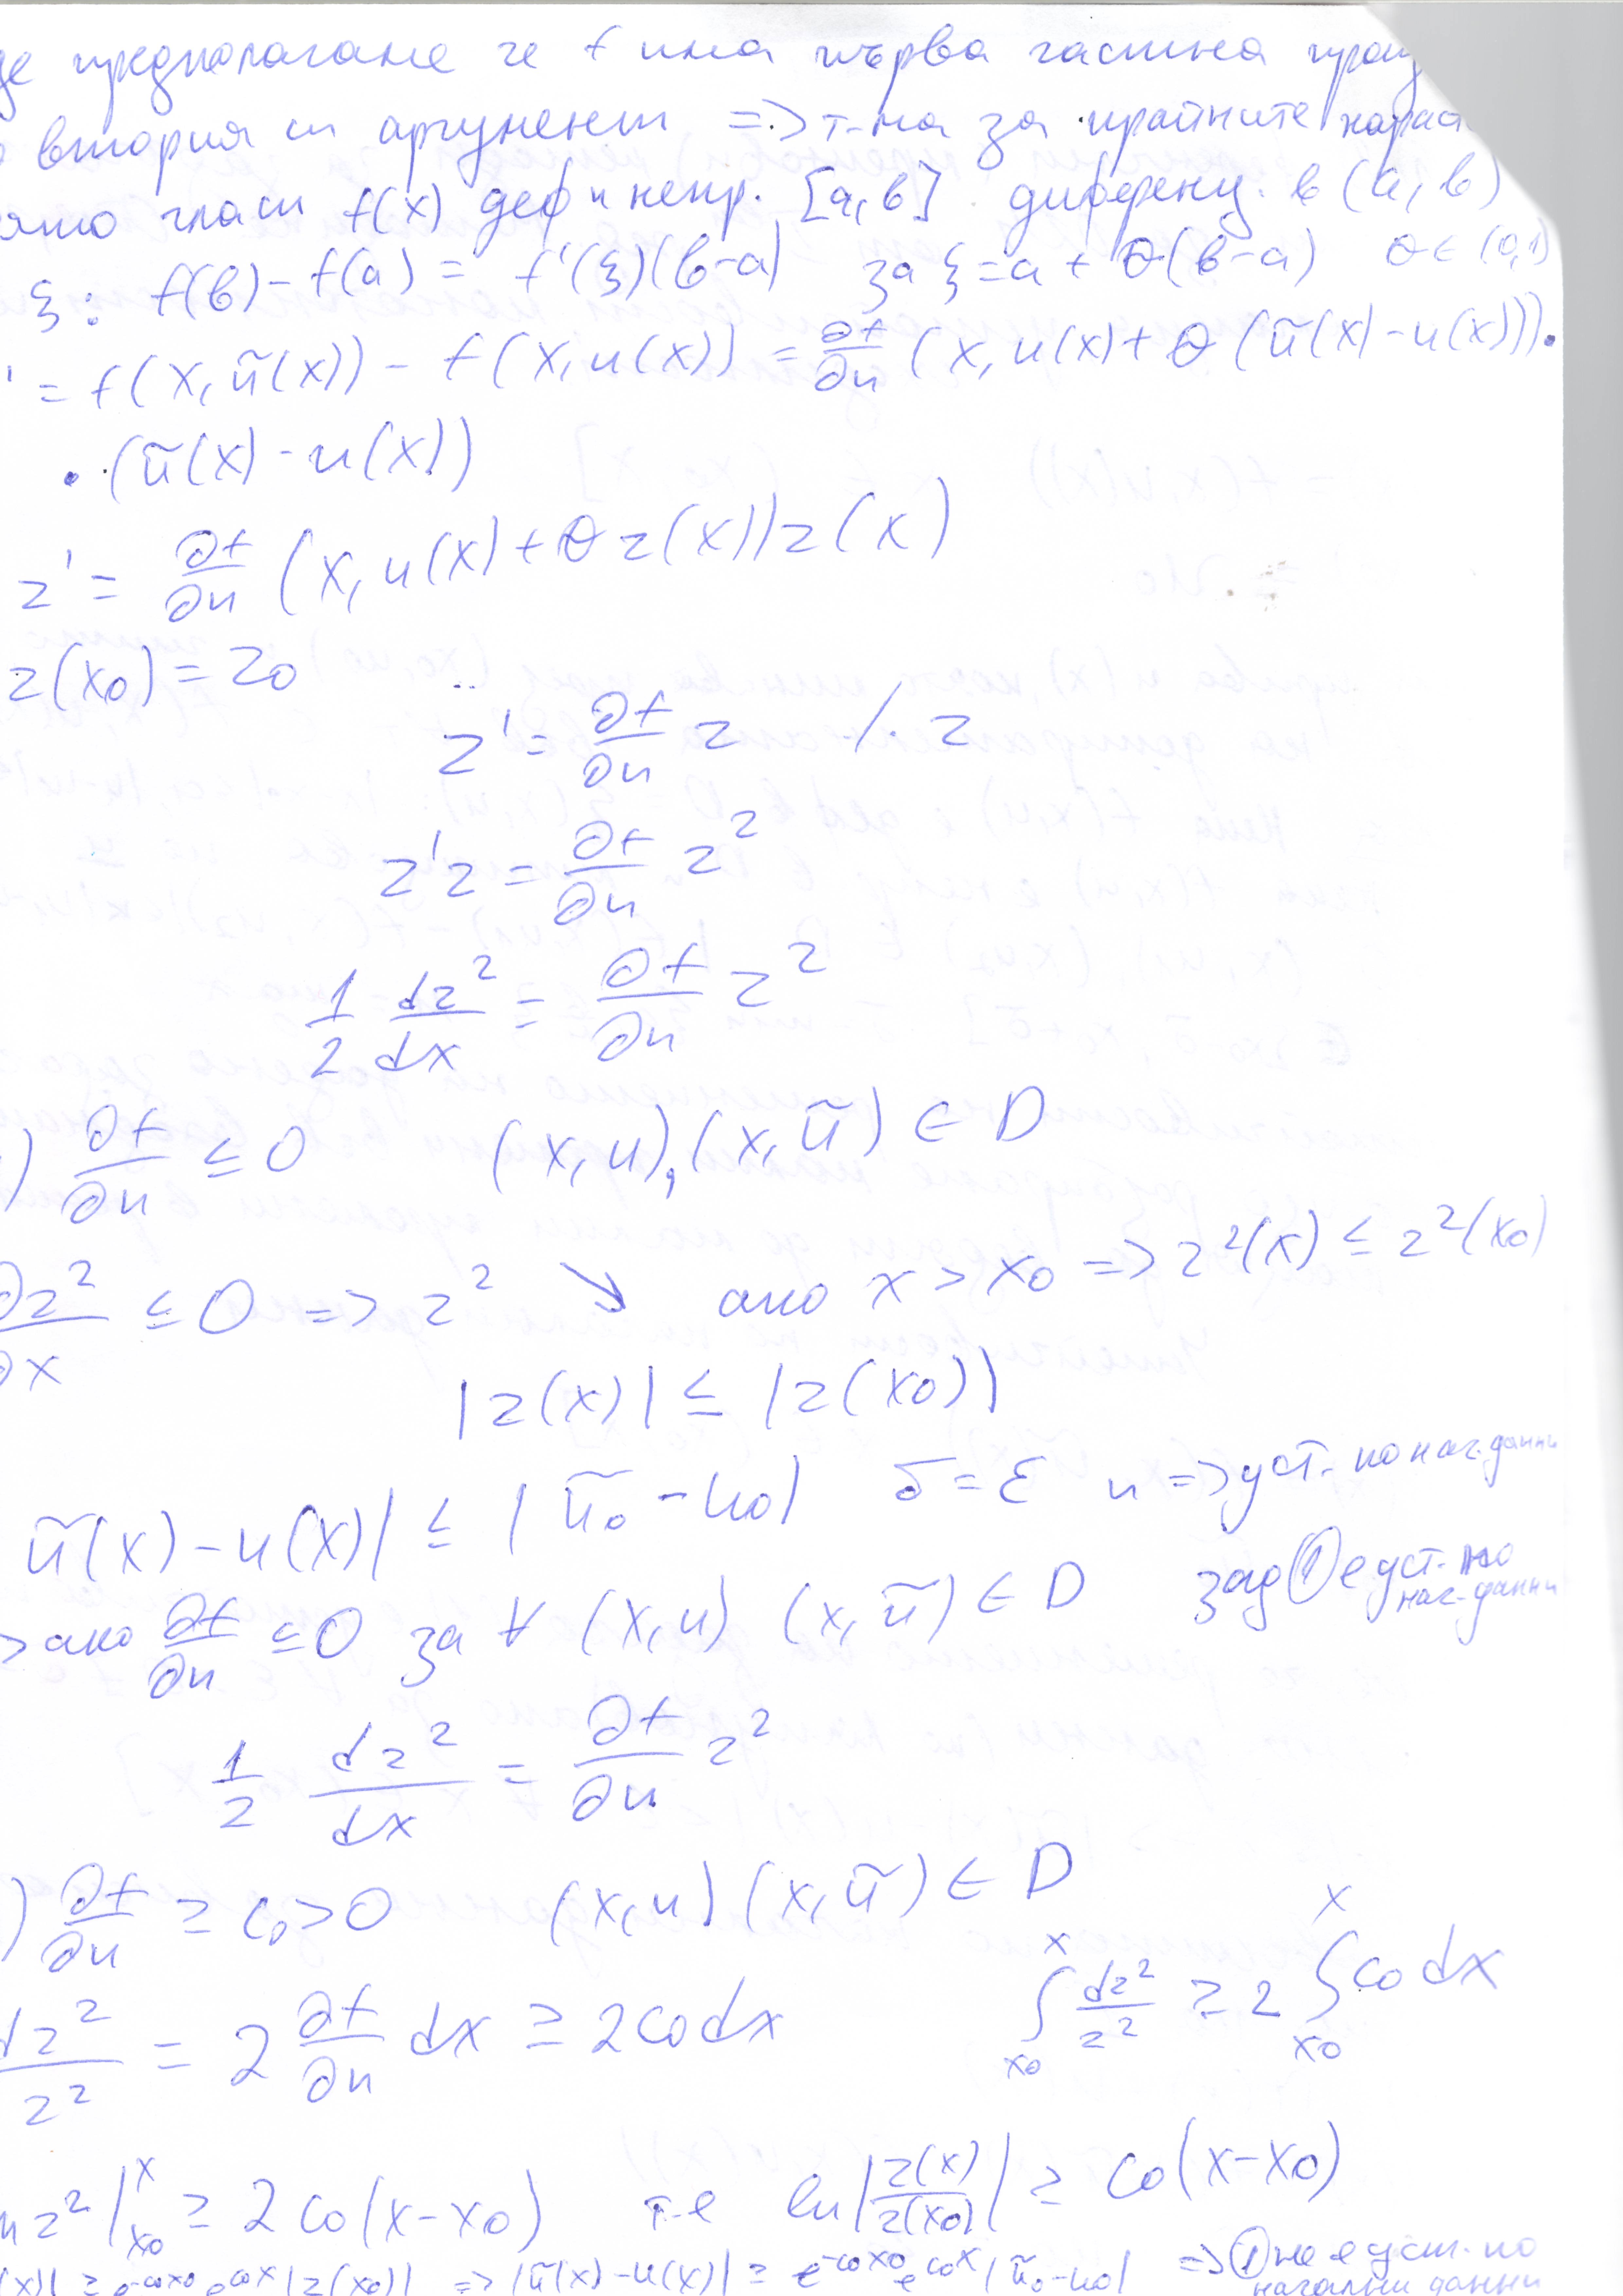 де предполагаме че f има първа частна произ
втория си аргумент => т-ма за крайните нараст
ято гласи f(x) деф и непр. [a,b] диференц. в (a,b)
ξ: f(b)-f(a) = f'(ξ)(b-a) за ξ=a+θ(b-a) θ∈(0,1)
' = f(x,ũ(x)) - f(x,u(x)) = ∂f/∂u (x,u(x)+θ(ũ(x)-u(x))).
.(ũ(x)-u(x))
z' = ∂f/∂u (x,u(x)+θz(x))z(x)
z(x₀)=z₀
z' = ∂f/∂u z /. z
z'z = ∂f/∂u z²
1/2 dz²/dx = ∂f/∂u z²
) ∂f/∂u ≤ 0 (x,u),(x,ũ)∈D
∂z²/∂x ≤ 0 => z² ↘ ако x > x₀ => z²(x) ≤ z²(x₀)
|z(x)| ≤ |z(x₀)|
ũ(x)-u(x)| ≤ |ũ₀-u₀| δ=ε и => уст. по нач. данни
> ако ∂f/∂u ≤ 0 за ∀ (x,u) (x,ũ)∈D зад ① е уст. по нач. данни
1/2 dz²/dx = ∂f/∂u z²
) ∂f/∂u ≥ c₀ > 0 (x,u) (x,ũ)∈D
dz²/z² = 2 ∂f/∂u dx ≥ 2c₀dx ∫ₓ₀ˣ dz²/z² ≥ 2 ∫ₓ₀ˣ c₀dx
n z² |ₓ₀ˣ ≥ 2c₀(x-x₀) т.е ln|z(x)/z(x₀)| ≥ c₀(x-x₀)
(x)| ≥ e^-c₀x₀ e^c₀x |z(x₀)| => |ũ(x)-u(x)| ≥ e^-c₀x₀ e^c₀x |ũ₀-u₀| => ① не е уст. по
начални данни